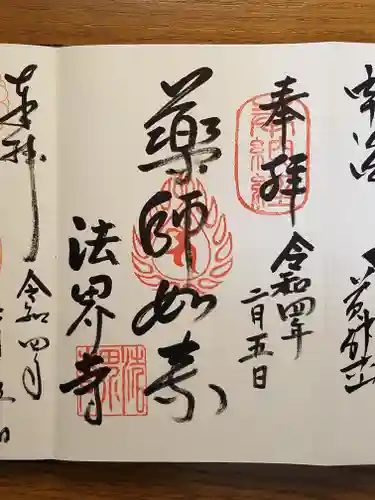 宇治
奉拝
令和四年
二月五日
薬師如来
法界寺
奉拝
令和四年